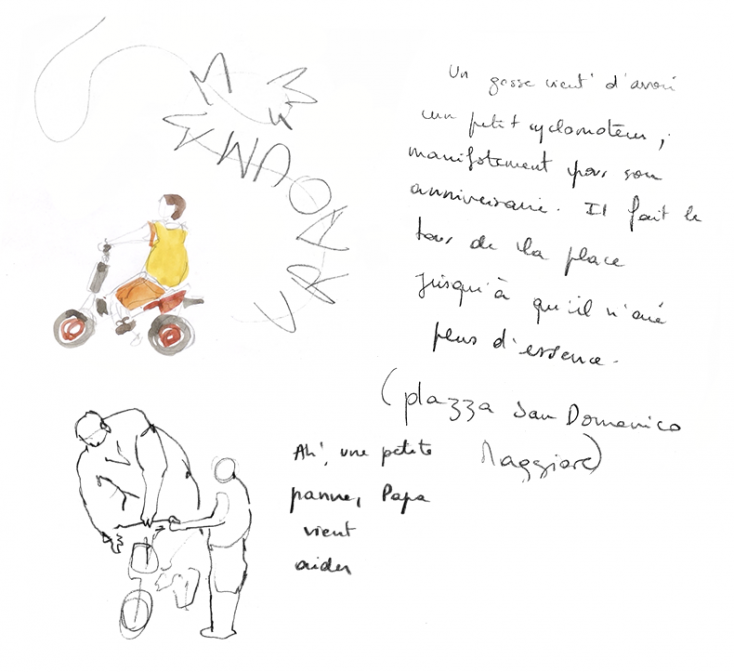 Un gosse vient d'avoir
un petit cyclomoteur,
manifestement pour son
anniversaire. Il fait le
tour de la place
jusqu'à qu'il n'aie
plus d'essence.
(piazza San Domenico
Maggiore)
Ah, une petite
panne, Papa
vient
aider